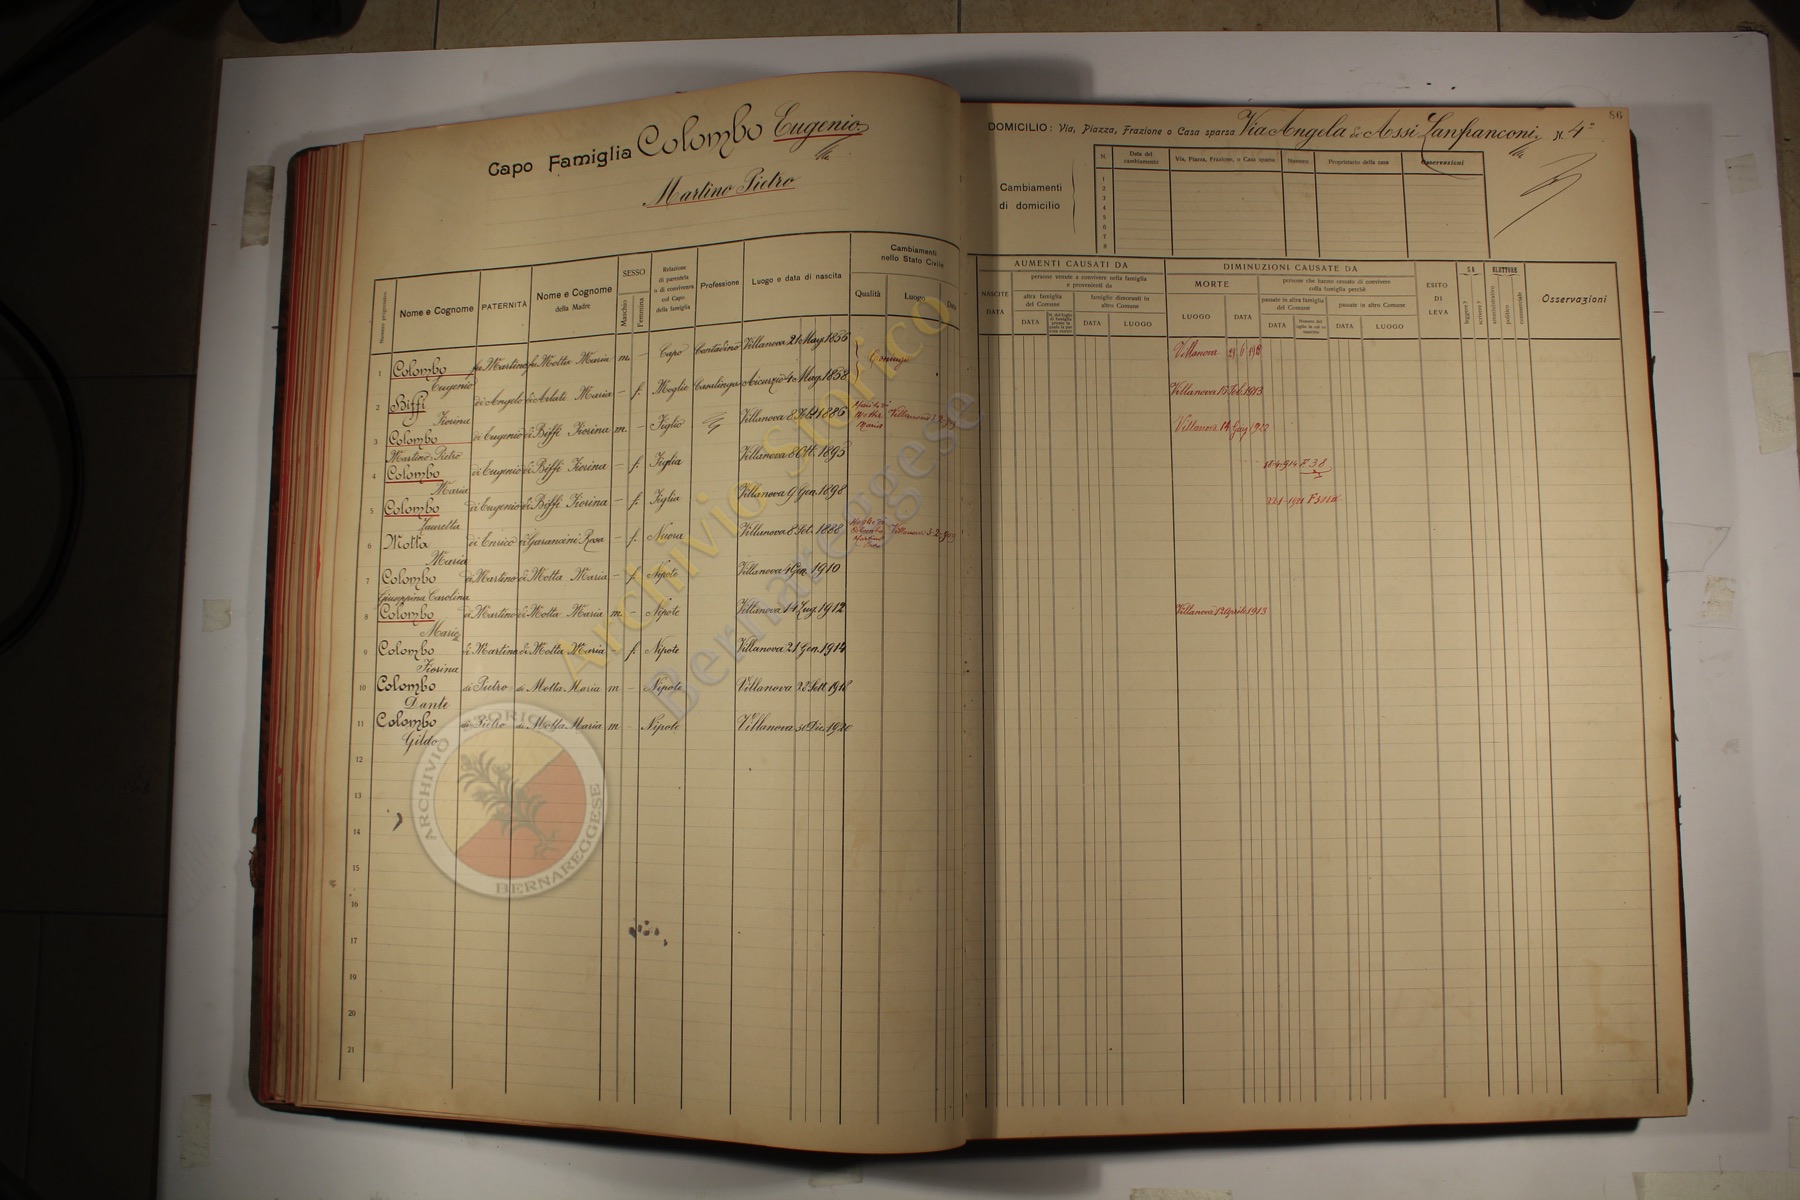 Capo Famiglia Colombo Eugenio
Martino Pietro
86
DOMICILIO: Via, Piazza, Frazione o Casa sparsa Via Angela De Assi Lanfranconi N. 4
Cambiamenti di domicilio
N. Data del cambiamento Via, Piazza, Frazione, o Casa sparsa Numero Proprietario della casa Osservazioni
1
2
3
4
5
6
7
8
Numero progressivo Nome e Cognome PATERNITÀ Nome e Cognome della Madre SESSO Maschio Femmina Relazione di parentela o di convivenza col Capo della famiglia Professione Luogo e data di nascita Cambiamenti nello Stato Civile Qualità Luogo Data
NASCITE DATA AUMENTI CAUSATI DA persone venute a convivere nella famiglia e provenienti da altra famiglia del Comune DATA famiglie dimoranti in altro Comune DATA LUOGO
DIMINUZIONI CAUSATE DA MORTE LUOGO DATA persone che hanno cessato di convivere colla famiglia perchè passate in altra famiglia del Comune DATA passate in altro Comune DATA LUOGO
ESITO DI LEVA SA leggere? scrivere? ELETTORE amministrativo politico commerciale Osservazioni
1 Colombo Eugenio fu Martino fu Motta Maria m. – Capo Contadino Villanova 21 Mag. 1856 Coniugi Villanova
2 Biffi Fiorina di Angelo di Arlati Maria – f. Moglie Casalinga Aicurzio 4 Mag. 1858 Villanova 15 Feb. 1913
3 Colombo Martino Pietro di Eugenio di Biffi Fiorina m. – Figlio Villanova 8 1886 Marito di Motta Maria Villanova 3.2.909 Villanova 14 1922
4 Colombo Maria di Eugenio di Biffi Fiorina – f. Figlia Villanova 8 Ott. 1895 18-4-914 F. 38
5 Colombo Lauretta di Eugenio di Biffi Fiorina – f. Figlia Villanova 9 Gen. 1898
6 Motta Maria di Enrico di Garancini Rosa – f. Nuora Villanova 8 Set. 1888 Moglie di Colombo Martino Pietro Villanova 3.2.909
7 Colombo Giuseppina Carolina di Martino di Motta Maria – f. Nipote Villanova 4 Gen. 1910
8 Colombo Mario di Martino di Motta Maria m – Nipote Villanova 14 Lug. 1912 Villanova 1 Aprile 1913
9 Colombo Fiorina di Martino di Motta Maria f. Nipote Villanova 21 Gen. 1914
10 Colombo Dante di Pietro di Motta Maria m – Nipote Villanova 28 Sett. 1918
11 Colombo Gildo di Pietro di Motta Maria m – Nipote Villanova Dic. 1920
12
13
14
15
16
17
18
19
20
21
Archivio Storico
Bernareggese
ARCHIVIO STORICO
BERNAREGGESE